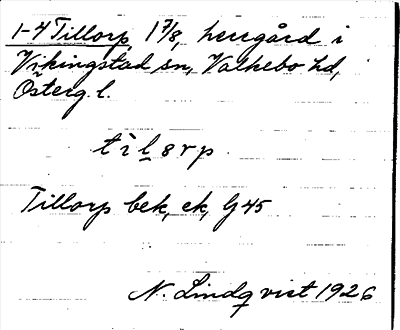 1-4 Tillorp, 1 7/8, herrgård i
Vikingstad sn, Valkebo hd,
Österg. l.
tìlsrp
Tillorp bek, ek, G 45
N. Lindqvist 1926